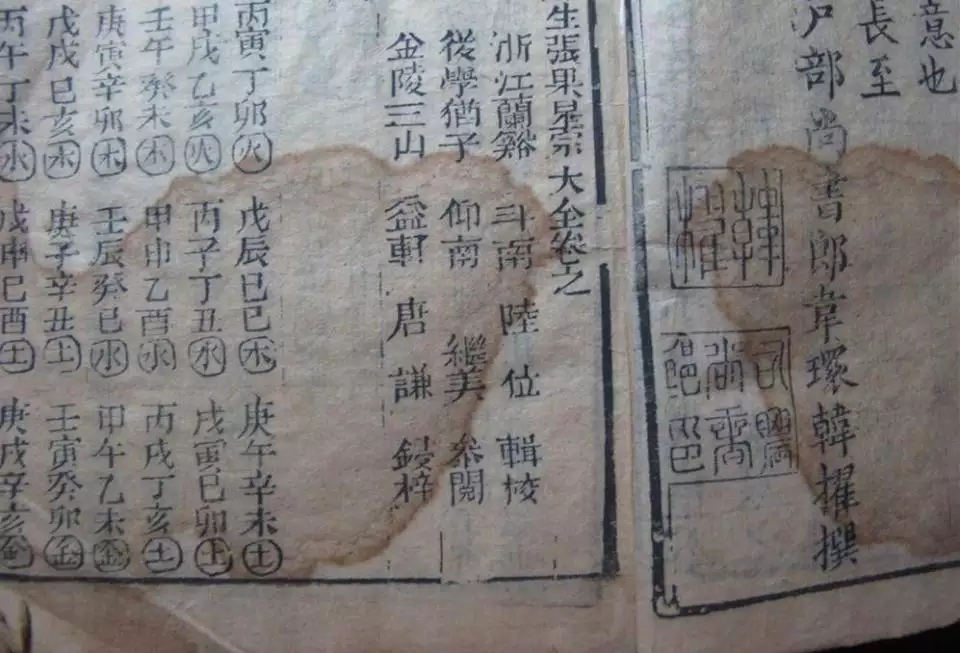 意也
長至
戶部尚書郎韋環韓擢撰
韓擢
生張果星宗大全卷之
浙江蘭谿 斗南 陸位 輯校
後學猶子 仰南 繼美 叅閱
金陵三山 益軒 唐謙 鋟梓
丙寅丁卯火 戊辰己巳木 庚午辛未土
甲戌乙亥火 丙子丁丑水 戊寅己卯土
壬午癸未木 甲申乙酉水 丙戌丁亥土
庚寅辛卯木 壬辰癸巳水 甲午乙未金
戊戌己亥木 庚子辛丑土 壬寅癸卯金
丙午丁未水 戊申己酉土 庚戌辛亥金